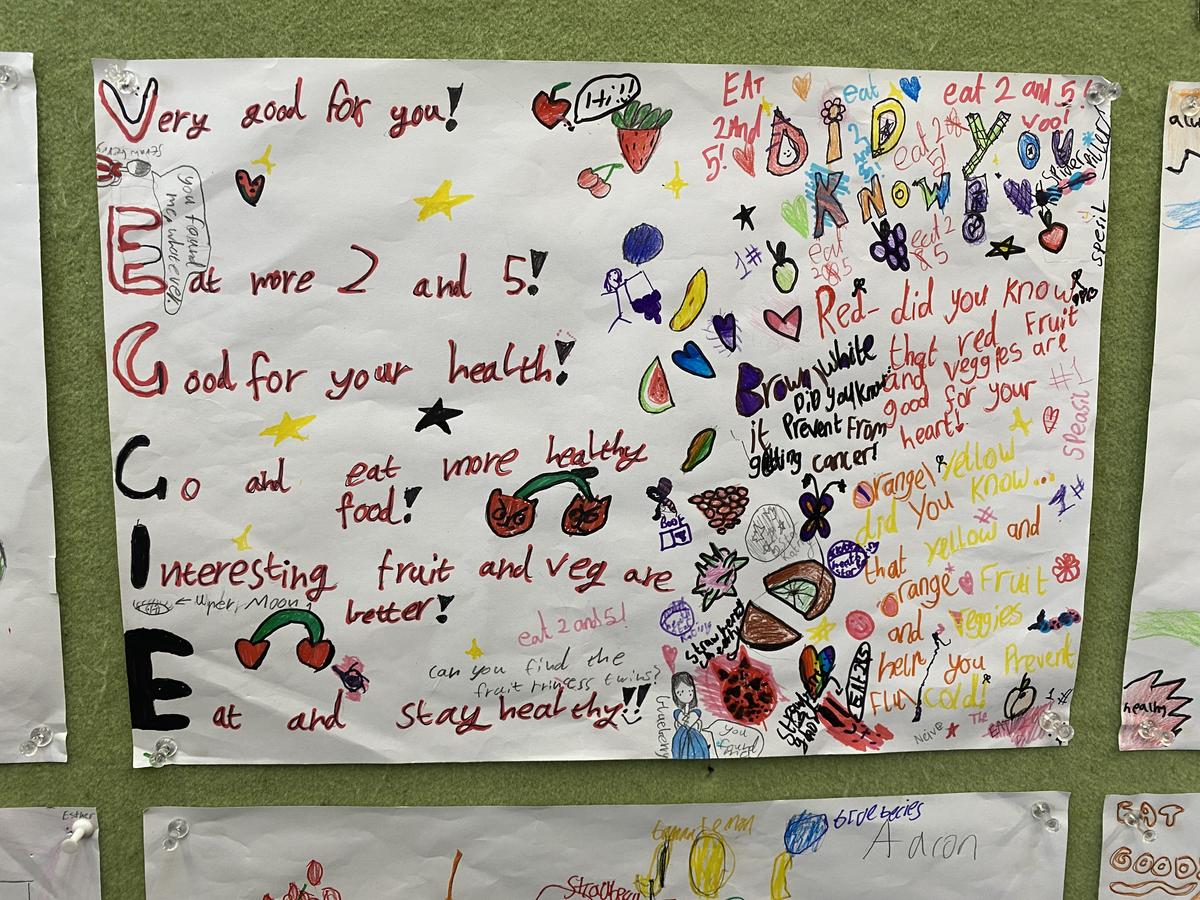 Very good for you!
Hi!!
you found
me, whatever
Eat more 2 and 5!
Good for your health!
Go and eat more healthy
food!
Interesting fruit and veg are
better!
← Uper Moon
eat 2 and 5!
can you find the
fruit Princess twins?
Eat and stay healthy!!
Blueberry
you
found
EAT
2 And
5!
eat
2 and
5!
eat 2 and 5!
eat 2
5!
DID YOU
KNOW!
Spider
spesil
eat
2 & 5
eat 2
& 5
1#
Red- did you know
that red Fruit
and veggies are
good for your
heart!
Brown\White
DiD you know
it Prevent From
getting cancer!
#1
speasil
Orange\Yellow
did You know...
that yellow and
orange Fruit
and veggies
help you Prevent
FLU\cold!
1#
Book
Strawberry
Neive
The
Esther
Lemon
blueberies
Aaron
EAT
GOOD
healm